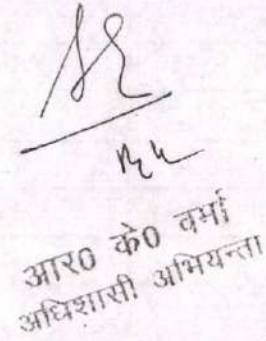 आर0 के0 वर्मा
अधिशासी अभियन्ता